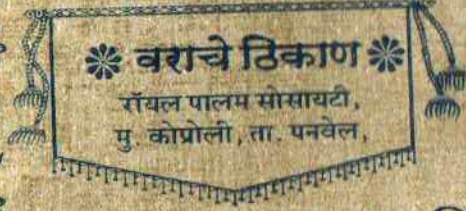 वराचे ठिकाण
रॉयल पालम सोसायटी,
मु. कोप्रोली, ता. पनवेल,